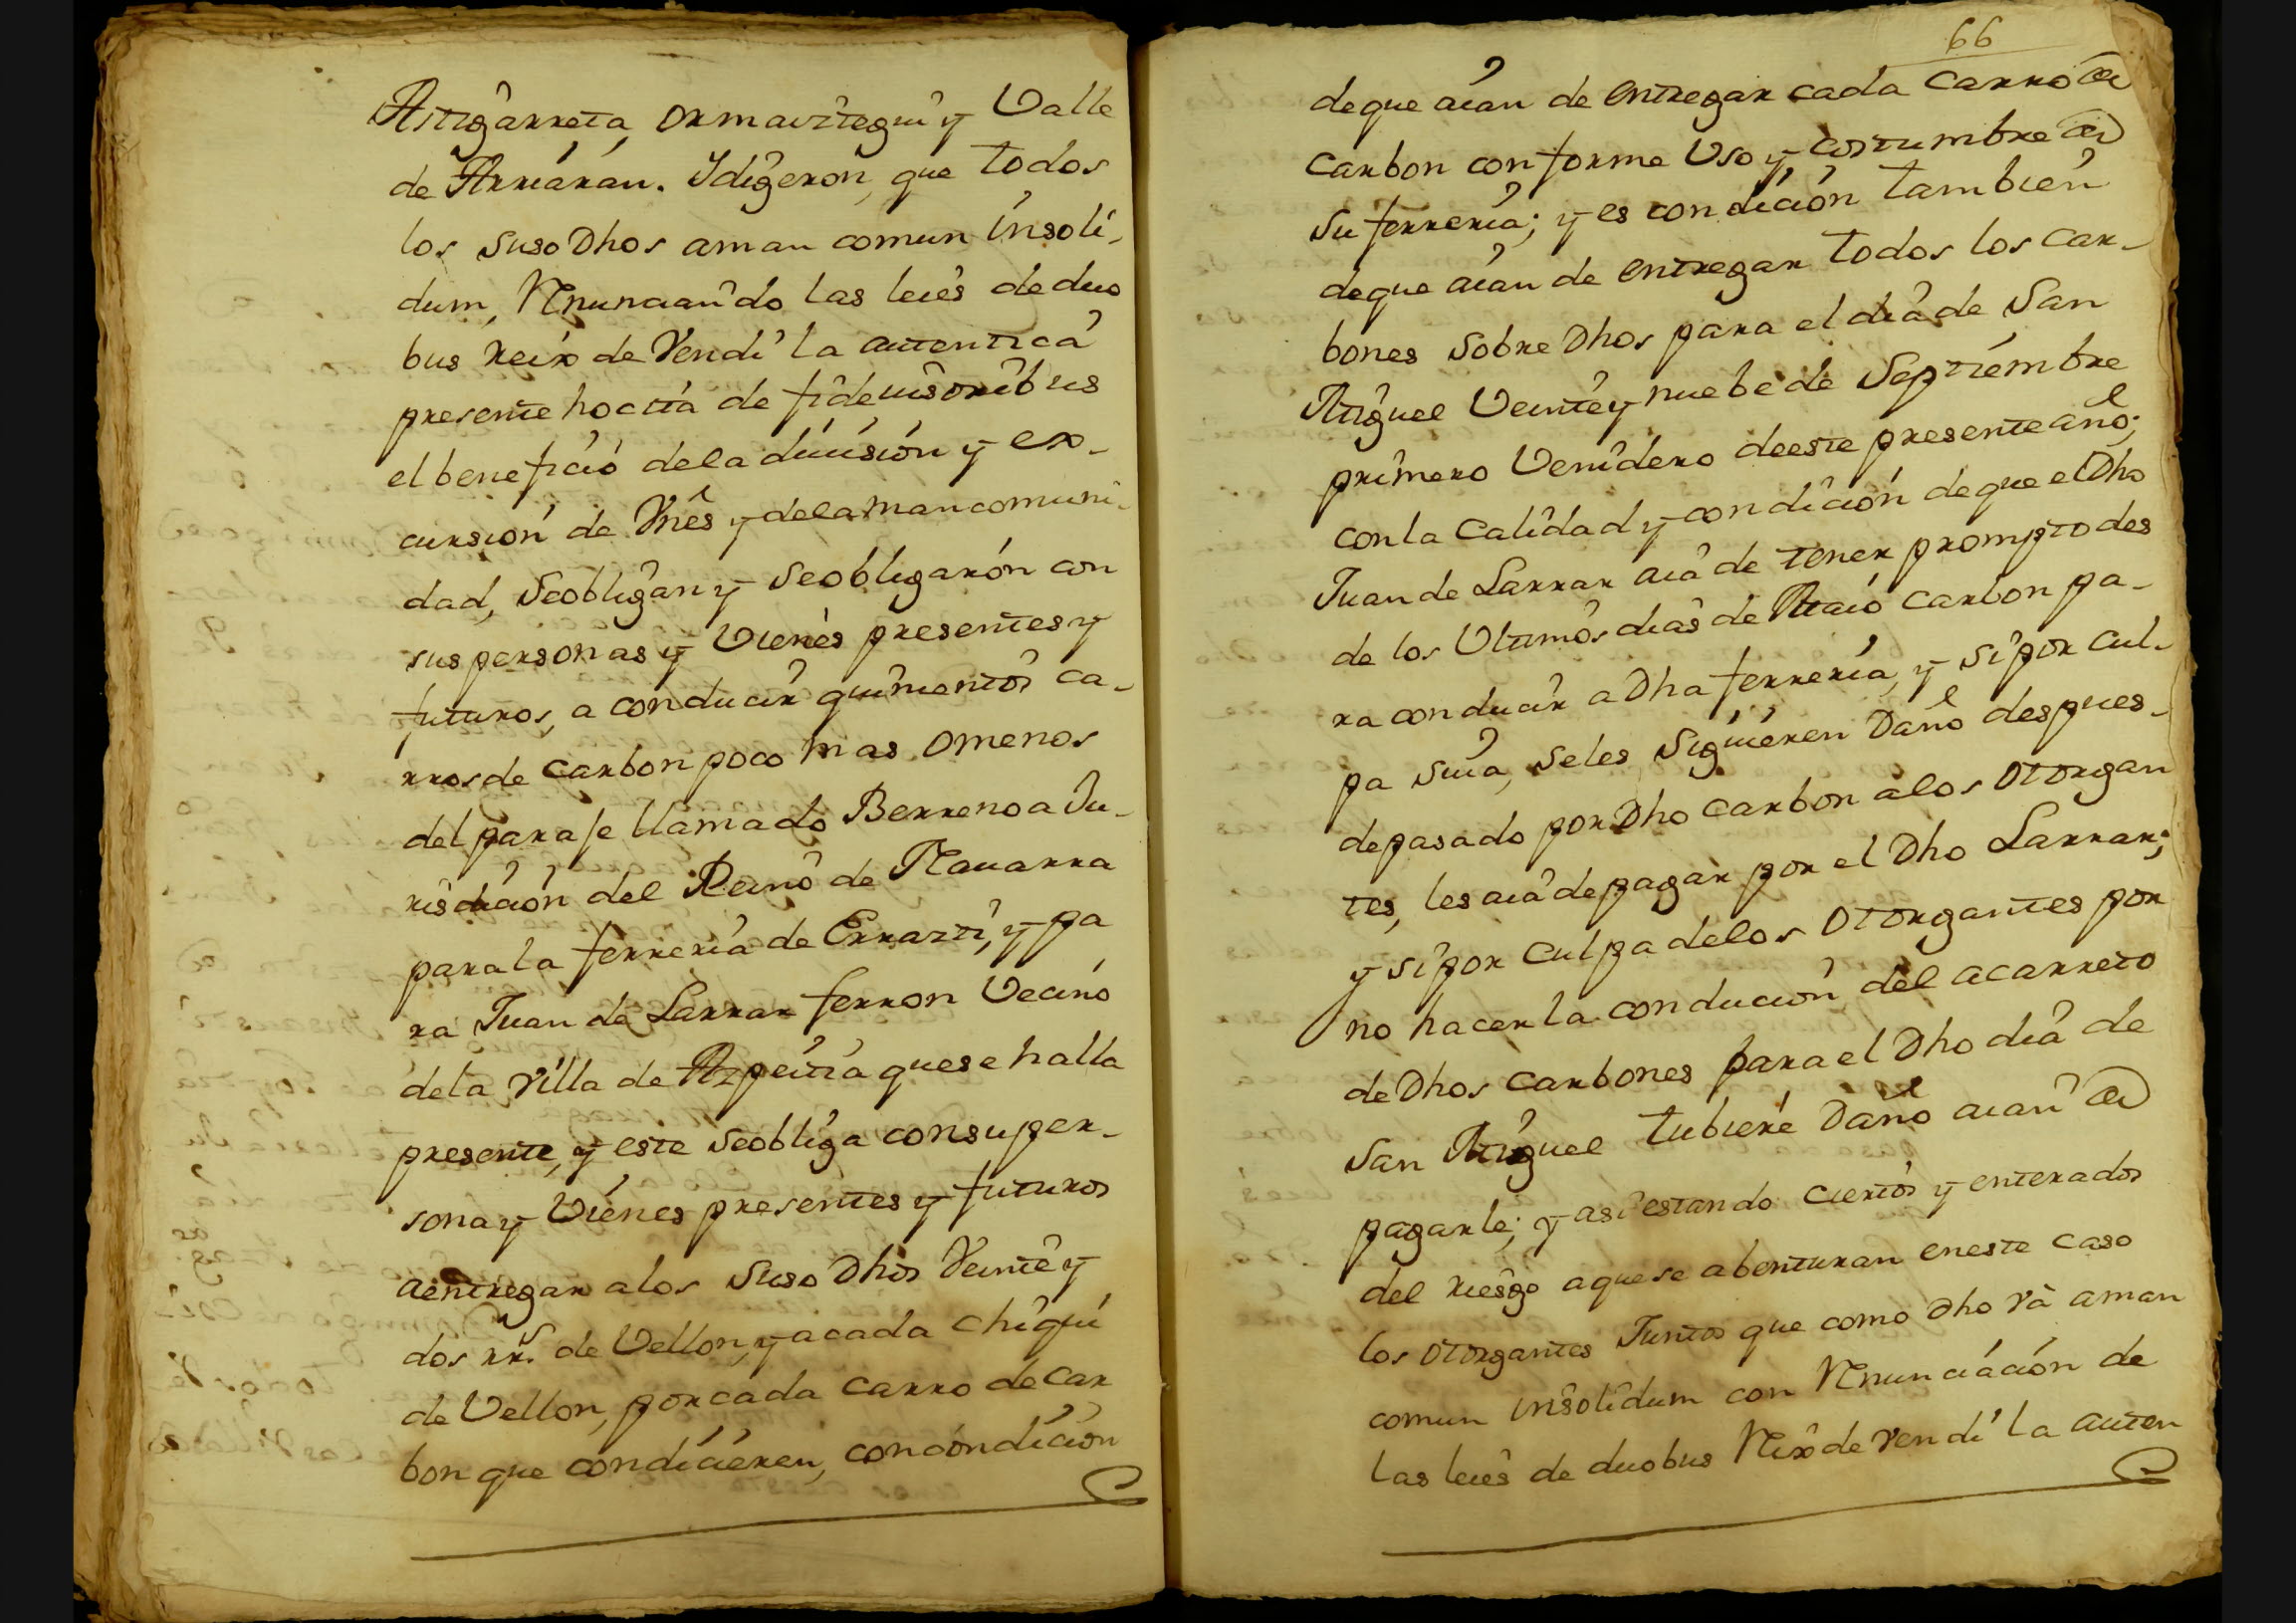 Astigarreta, ormaiztegui y Valle
de Arriarán. Y digeron, que todos
los suso Dhos aman comun insoli-
dum, Renunciando las leies de duo
bus Reix de Vendi la autentica
presente hocita de fideiusoribus
el beneficio dela diuisión y ex-
cursión de Vnes y dela mancomuni-
dad, Seobligan y Seobligarón con
sus personas y Vienes presentes y
futuros, a conducir quinientos ca-
rros de carbon poco mas omenos
del paraje llamado Berrenoa Ju-
risdición del Reino de Nauarra
para la ferreria de Errazti, y pa
ra Juan de Larrar ferron Vecino
dela Villa de Azpeitia quese halla
presente, y este seobliga consuper-
sona y Vienes presentes y futuros
aentregar alos Suso Dhos Veinte y
dos rrs. de Vellon, y acada chiqui
de Vellon, porcada carro de Car
bon que condicieren, concondición
66
deque aian de entregar cada carro de
carbon conforme Uso y costumbre de
su ferreria; y es condición también
deque aian de entregar todos los car-
bones sobre Dhos para el dia de San
Miguel Veinte y nuebe de Septiembre
primero Venidero deeste presente año;
conla Calidad y condición deque el Dho
Juan de Larrar aia de tener prompto des
de los Ultimos dias de Maio carbon pa-
ra conducir a Dha ferreria, y si por cul-
pa suia, seles siguieren Daño despues-
depasado por Dho carbon alos otorgan
tes, les aia de pagar por el Dho Larrar;
y si por culpa delos otorgantes por
no hacer la condución del acarreto
de Dhos carbones para el Dho dia de
San Miguel tubiere Daño aian de
pagarle; y asi estando ciertos y enterados
del riesgo aquese abenturan eneste caso
los otorgantes Juntos que como Dho và aman
comun insolidum con Renunciación de
las leies de duobus Reix de Vendi la auten